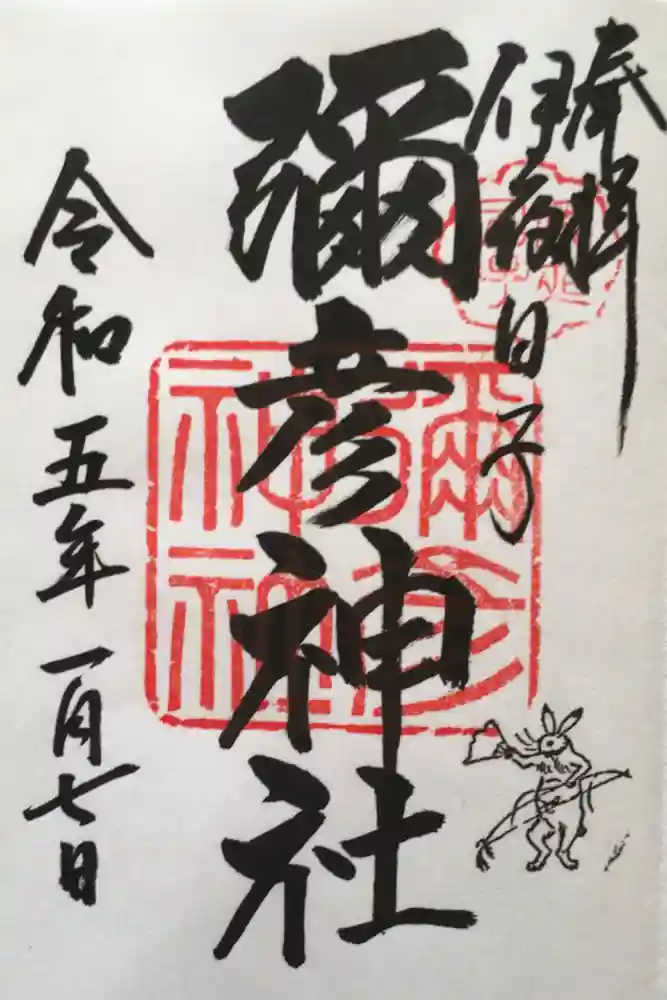 奉拝
伊夜日子
彌彦神社
令和五年一月七日
彌彦神社